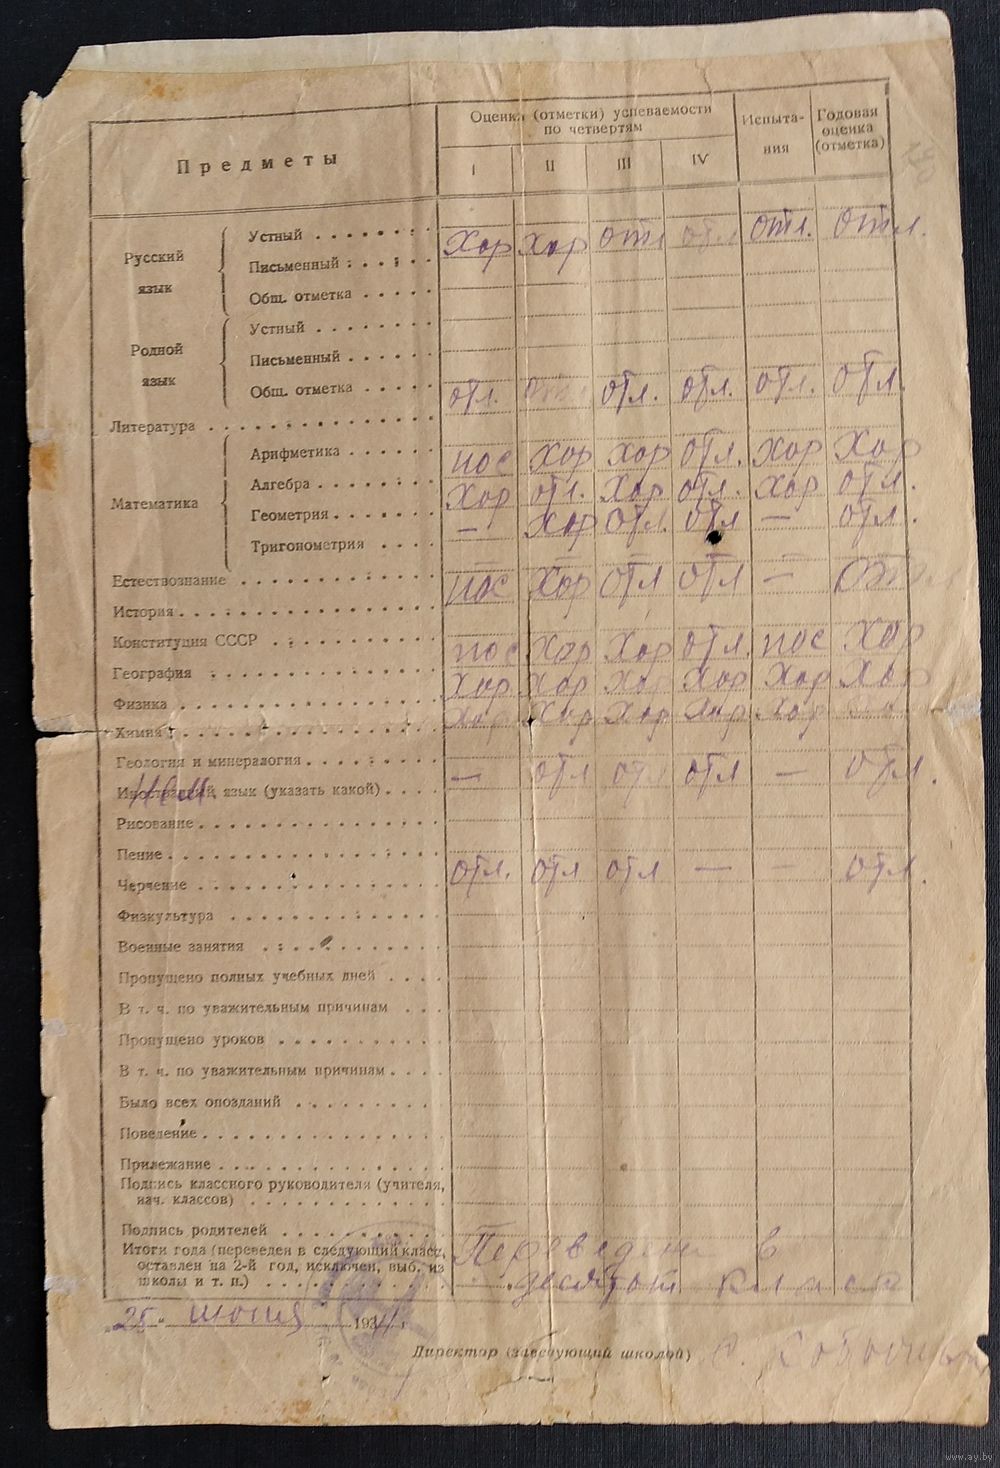 Предметы
Оценки (отметки) успеваемости по четвертям
I II III IV
Испыта-ния
Годовая оценка (отметка)
Русский язык
Устный Хор Хор отл отл отл. отл.
Письменный
Общ. отметка
Родной язык
Устный
Письменный
Общ. отметка отл. отл отл. отл. отл. отл.
Литература
Математика
Арифметика пос Хор хор отл. хор Хор
Алгебра Хор отл. Хор отл. хор отл.
Геометрия — хор отл. отл — отл.
Тригонометрия
Естествознание пос Хор отл отл — отл
История
Конституция СССР пос Хор Хор отл. пос Хор
География Хор Хор Хор Хор Хор Хор
Физика Хор Хор Хор Хор Хор
Химия
Геология и минералогия — отл отл отл — отл.
Иностранный язык (указать какой)
нем.
Рисование
Пение
Черчение отл. отл отл — — отл.
Физкультура
Военные занятия
Пропущено полных учебных дней
В т. ч. по уважительным причинам
Пропущено уроков
В т. ч. по уважительным причинам
Было всех опозданий
Поведение
Прилежание
Подпись классного руководителя (учителя,
нач. классов)
Подпись родителей
Итоги года (переведен в следующий класс, Переведен в
оставлен на 2-й год, исключен, выб. из десятый класс
школы и т. п.)
„25“ июня 194 г.
Директор (заведующий школой)
www.ay.by